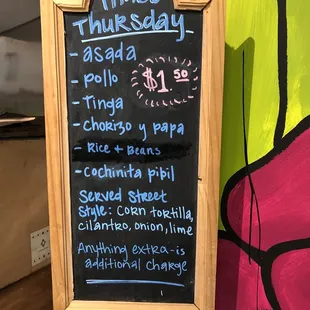 Thursday
- asada
- pollo
$1.50
- Tinga
- Chorizo y papa
- Rice + Beans
- Cochinita pibil
Served Street
Style: Corn tortilla,
cilantro, onion, lime
Anything extra-is
additional charge